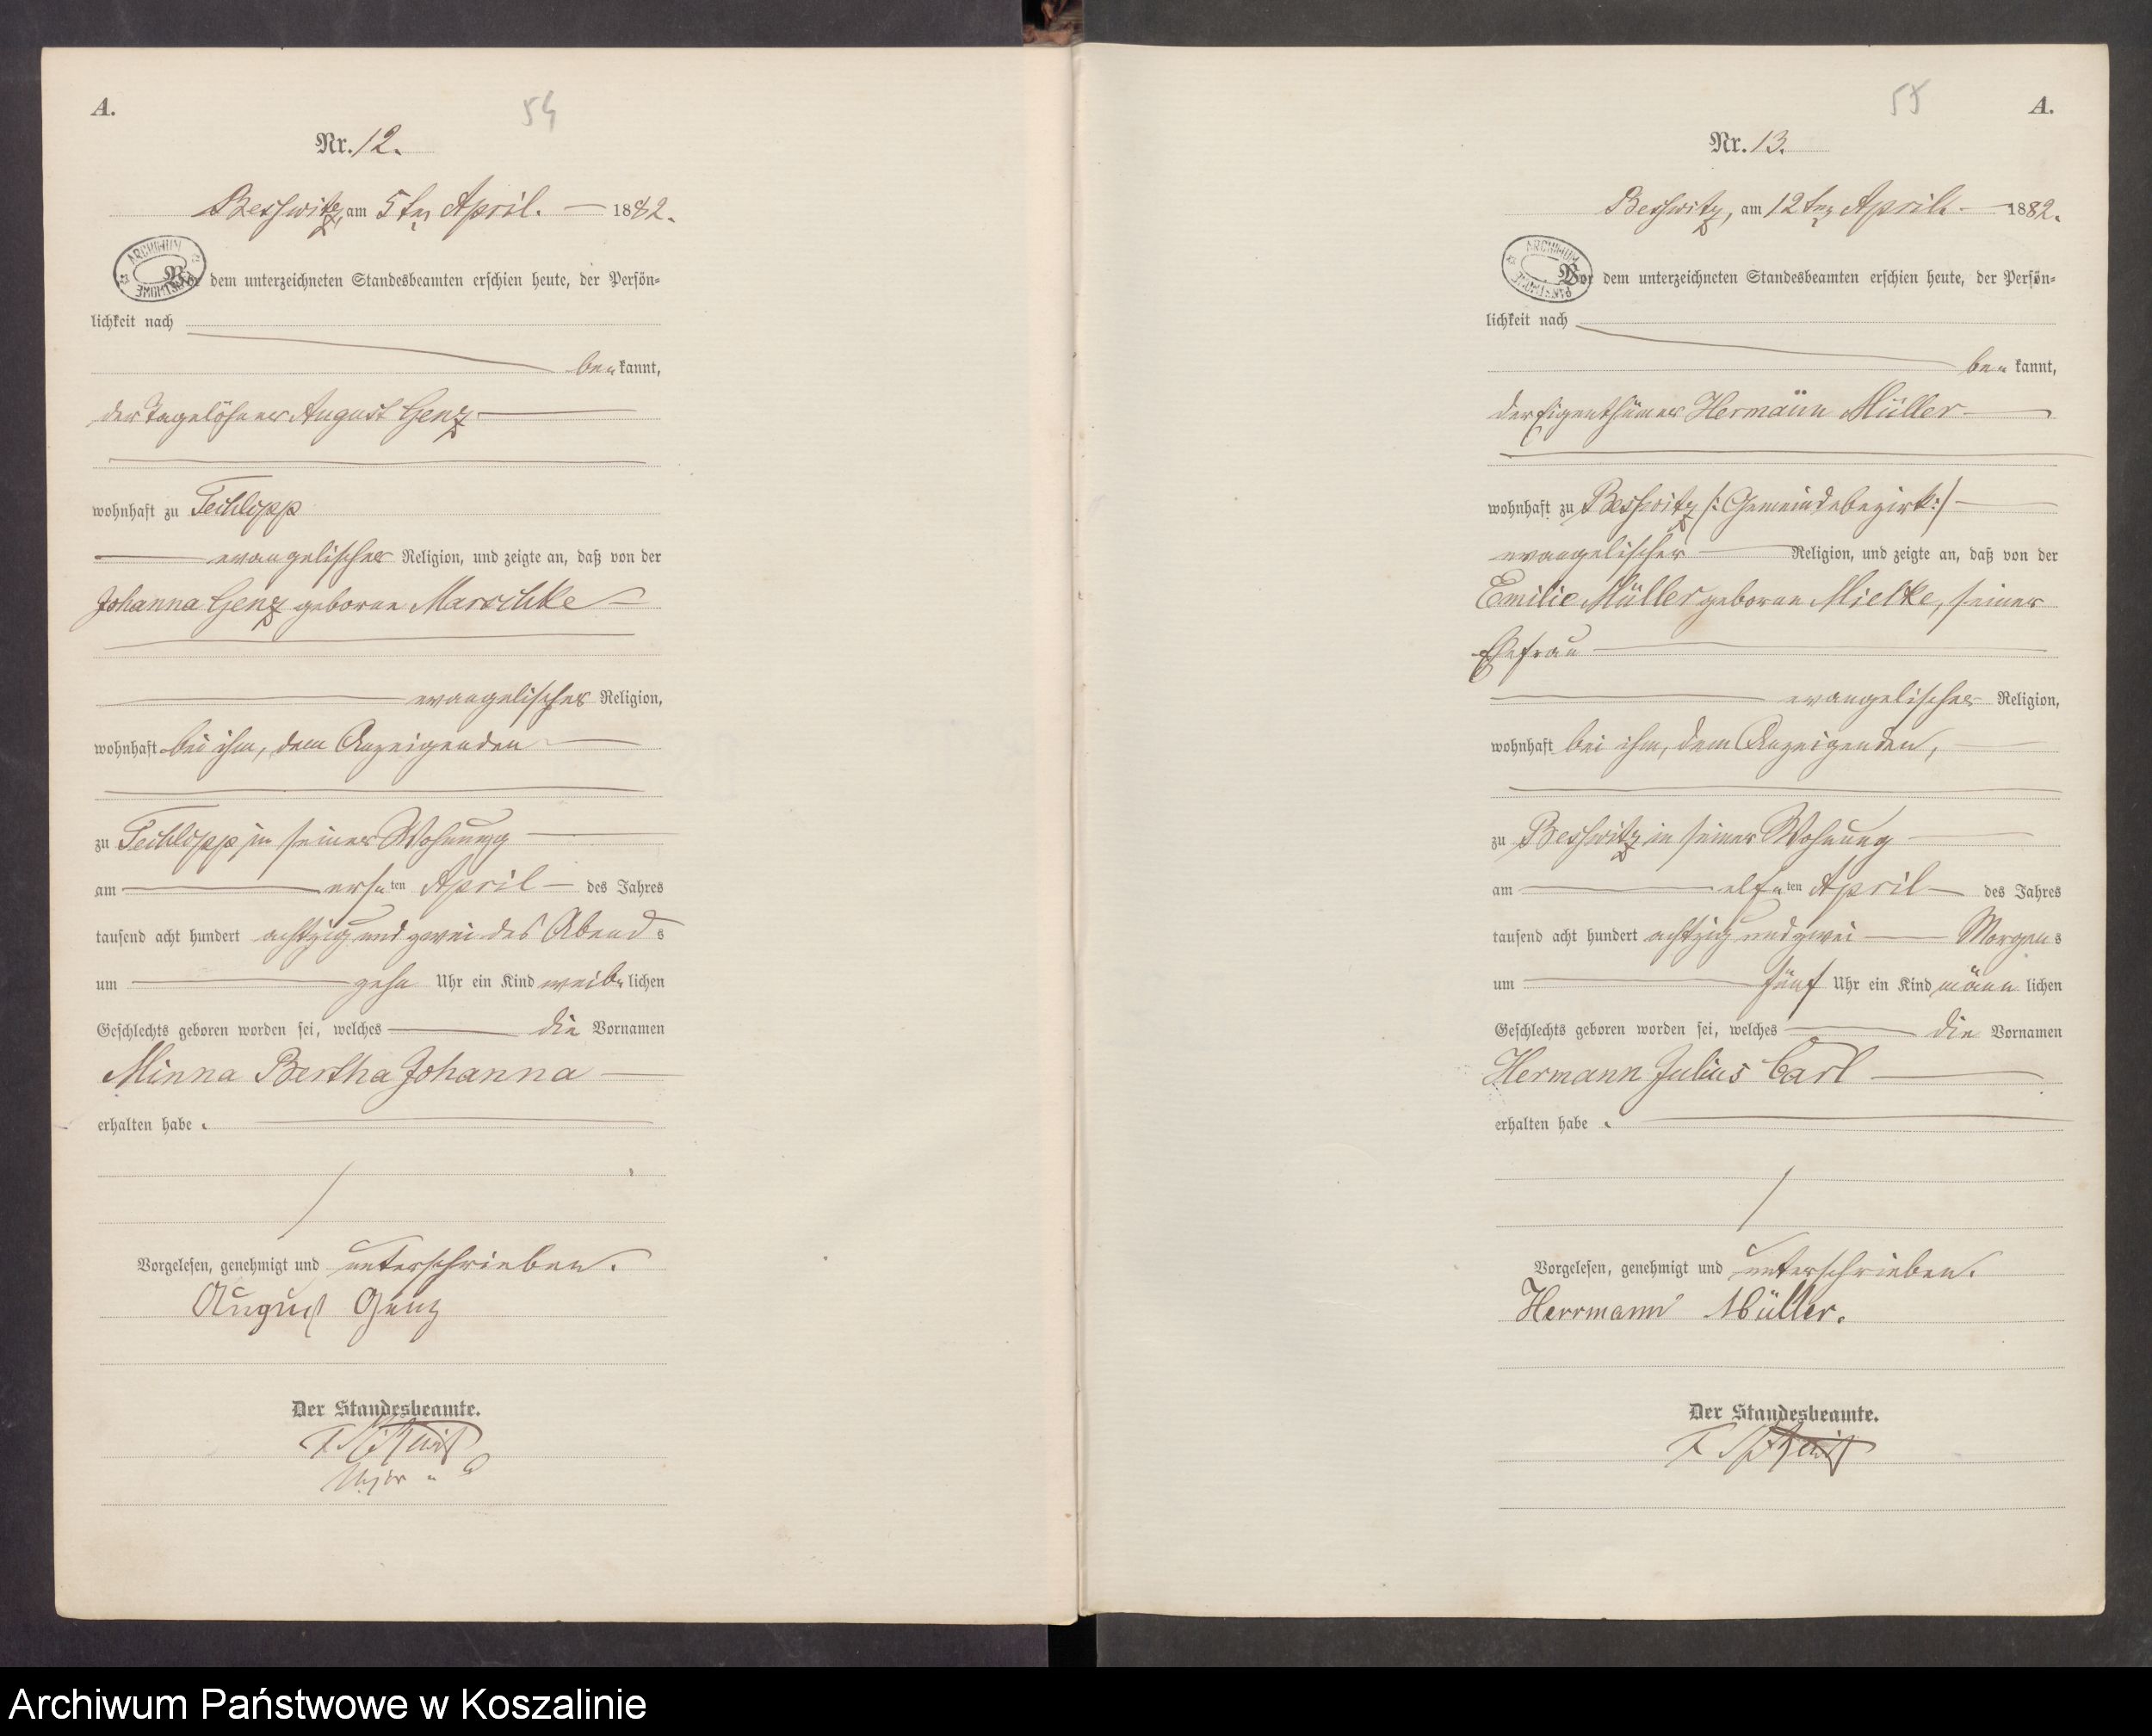 A.
54
Nr. 12.
Beßwitz, am 5ten April. 1882.
ARCHIWUM PAŃSTWOWE
Vor dem unterzeichneten Standesbeamten erschien heute, der Persön-
lichkeit nach
be- kannt,
der Tagelöhner August Genz
wohnhaft zu Techlipp
evangelischer Religion, und zeigte an, daß von der
Johanna Genz geborne Marschke
evangelischer Religion,
wohnhaft bei ihm, dem Anzeigenden
zu Techlipp in seiner Wohnung
am ersten April des Jahres
tausend acht hundert achtzig und zwei des Abends
um zehn Uhr ein Kind weib- lichen
Geschlechts geboren worden sei, welches die Vornamen
Minna Bertha Johanna
erhalten habe.
Vorgelesen, genehmigt und unterschrieben.
August Genz
Der Standesbeamte.
55
A.
Nr. 13.
Beßwitz, am 12ten April. 1882.
ARCHIWUM PAŃSTWOWE
Vor dem unterzeichneten Standesbeamten erschien heute, der Persön-
lichkeit nach
be- kannt,
der Eigenthümer Hermann Müller
wohnhaft zu Beßwitz /: Gemeindebezirk :/
evangelischer Religion, und zeigte an, daß von der
Emilie Müller geborne Mielke, seiner
Ehefrau
evangelischer Religion,
wohnhaft bei ihm, dem Anzeigenden,
zu Beßwitz in seiner Wohnung
am elften April des Jahres
tausend acht hundert achtzig und zwei Morgens
um fünf Uhr ein Kind männ lichen
Geschlechts geboren worden sei, welches die Vornamen
Hermann Julius Carl
erhalten habe.
Vorgelesen, genehmigt und unterschrieben.
Herrmann Müller.
Der Standesbeamte.
Archiwum Państwowe w Koszalinie